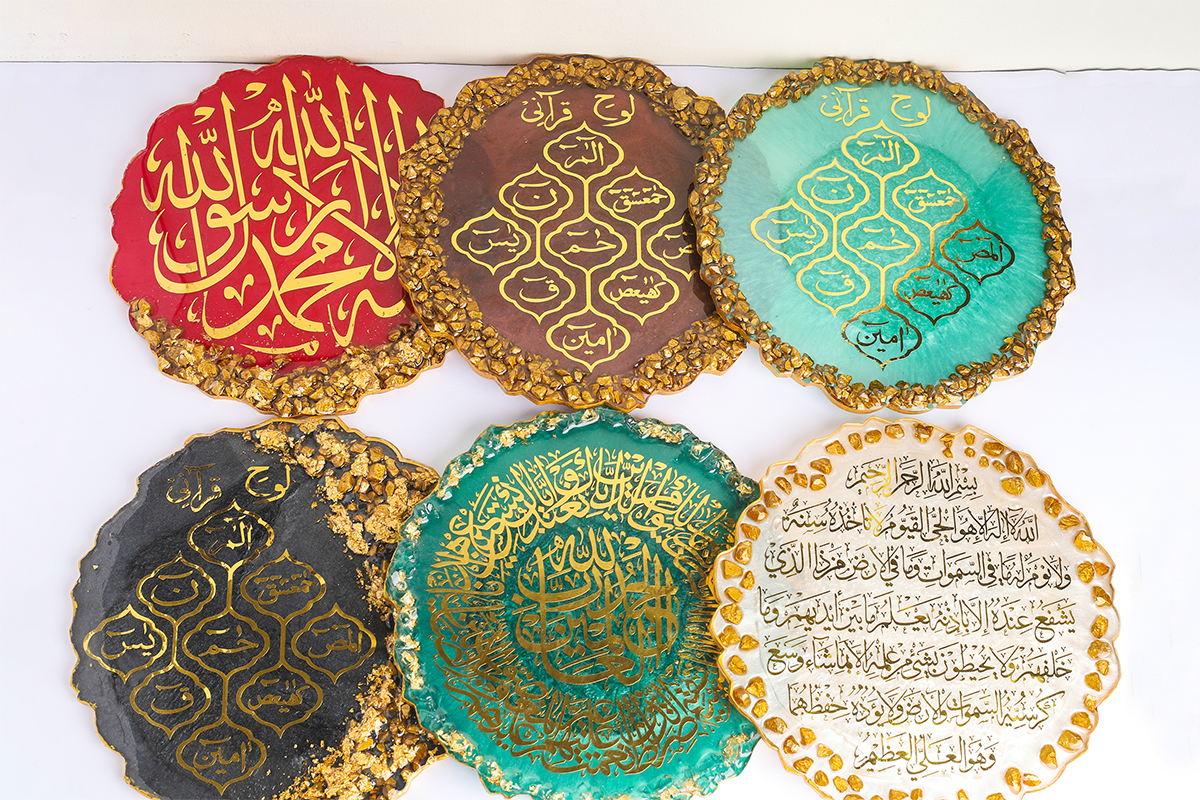 الا الله
محمد رسول الله
لوح قرآنی
الٓمٓرٰ
نٓ حٰمٓعٓسٓقٓ
یٰسٓ حٰمٓ
قٓ كٓهٰیٰعٓصٓ
اٰمین
لوح قرآنی
الٓمٓرٰ
نٓ حٰمٓعٓسٓقٓ
یٰسٓ حٰمٓ الٓمٓصٓ
قٓ كٓهٰیٰعٓصٓ
اٰمین
لوح قرآنی
الٓمٓرٰ
نٓ حٰمٓعٓسٓقٓ
یٰسٓ حٰمٓ الٓمٓصٓ
قٓ كٓهٰیٰعٓصٓ
اٰمین
الحمد لله رب العالمين
بسم الله الرحمن الرحيم
الله لا اله الا هو الحي القيوم لا تأخذه سنة
ولا نوم له ما في السموات وما في الارض من ذا الذي
يشفع عنده الا باذنه يعلم ما بين ايديهم وما
خلفهم ولا يحيطون بشيء من علمه الا بما شاء وسع
كرسيه السموات والارض ولا يؤده حفظهما
وهو العلي العظيم